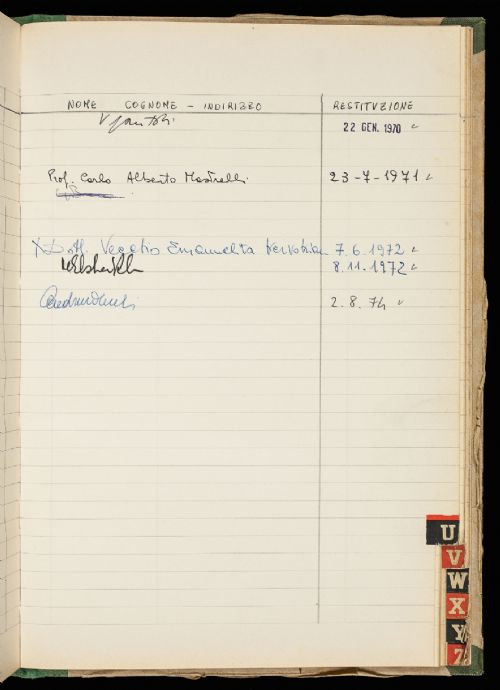 NOME COGNOME - INDIRIZZO RESTITUZIONE
22 GEN. 1970
Prof. Carlo Alberto Mastrelli 23-7-1971
X Dott. Vecchio Emanuelita 7.6.1972
8.11.1972
2.8.74
U
V
W
X
Y
Z